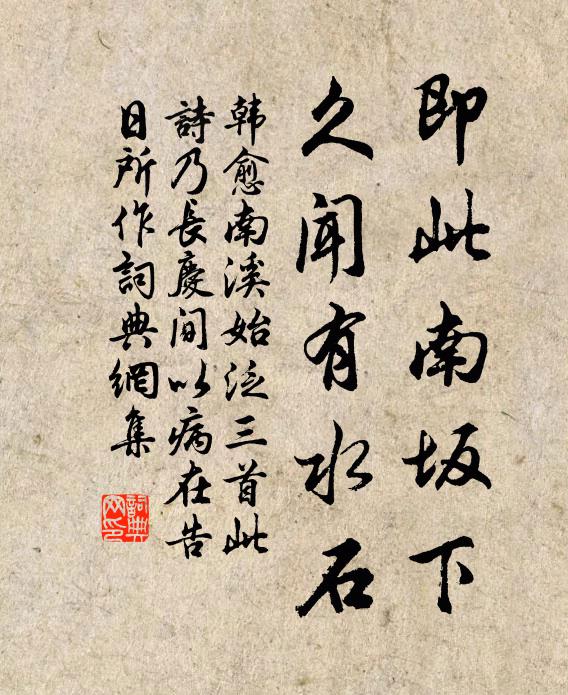 即此南坂下
久聞有水石
韩愈南溪始泛三首此
詩乃長慶间以病在告
日所作詞典網集
詞典网印